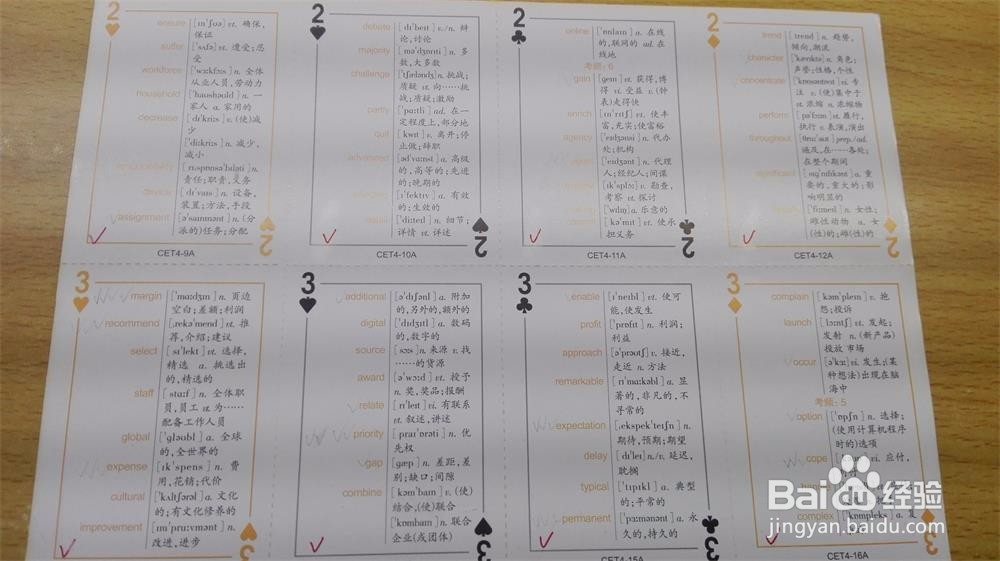 2
ensure ['ɪn'ʃʊə] vt. 确保,
保证
suffer ['sʌfə] vt. 遭受;忍
受
workforce ['wɜːkfɔːs] n. 全体
从业人员,劳动力
household ['haʊshəʊld] n. 一
家人 a. 家用的
decrease [dɪ'kriːs] v. (使)减
少
['diːkriːs] n. 减少,
减小
[rɪˌspɒnsə'bɪləti] n.
责任;职责,义务
device [dɪ'vaɪs] n. 设备,
装置;方法,手段
assignment [ə'saɪnmənt] n. (分
派的)任务;分配
2
CET4-9A
2
debate [dɪ'beɪt] v./n. 辩
论,讨论
majority [mə'dʒɒrəti] n. 多
数,大多数
challenge ['tʃælɪndʒ] n. 挑战;
质疑 vt. 向……挑
战;质疑;激励
partly ['pɑːtli] ad. 在一
定程度上,部分地
quit [kwɪt] v. 离开;停
止做;辞职
advanced [əd'vɑːnst] a. 高级
的,高等的;先进
的;晚期的
[ɪ'fektɪv] a. 有效
的;生效的
detail ['diːteɪl] n. 细节;
详情 vt. 详述
2
CET4-10A
2
online ['ɒnlaɪn] a. 在线
的,联网的 ad. 在
线地
考频:6
gain [geɪn] vt. 获得,博
得 vi. 受益 v. (钟
表)走得快
enrich [ɪn'rɪtʃ] vt. 使丰
富,充实;使富裕
agency ['eɪdʒənsi] n. 代办
处;机构
agent ['eɪdʒənt] n. 代理
人;经纪人;间谍
[ɪk'splɔː] v. 勘查,
考察 vt. 探讨
['wɪlɪŋ] a. 乐意的
[kə'mɪt] vt. 使承
担义务
2
CET4-11A
2
trend [trend] n. 趋势,
倾向,潮流
character ['kærəktə] n. 角色;
声誉;性格,个性
concentrate ['kɒnsəntreɪt] vi. 专
注 v. (使)集中于
vt. 浓缩 n. 浓缩物
perform [pə'fɔːm] vt. 履行,
执行 v. 表演,演出
throughout [θruː'aʊt] prep./ad.
遍及,在……各处;
在整个期间
significant [sɪg'nɪfɪkənt] a. 重
要的,重大的;影
响明显的
['fiːmeɪl] n. 女性;
雌性动物 a. 女
(性)的;雌(性)的
2
CET4-12A
3
margin ['mɑːdʒɪn] n. 页边
空白;差额;利润
recommend [ˌrekə'mend] vt. 推
荐,介绍;建议
select [sɪ'lekt] vt. 选择,
精选 a. 挑选出
的,精选的
staff [stɑːf] n. 全体职
员,员工 vt. 为……
配备工作人员
global ['gləʊbl] a. 全球
的,全世界的
expense [ɪk'spens] n. 费
用,花销;代价
cultural ['kʌltʃərəl] a. 文化
的;有文化修养的
improvement [ɪm'pruːvmənt] n.
改进,进步
3
3
additional [ə'dɪʃənl] a. 附加
的,另外的,额外的
digital ['dɪdʒɪtl] a. 数码
的,数字的
source [sɔːs] n. 来源 v. 找
……的货源
award [ə'wɔːd] vt. 授予
n. 奖,奖品;报酬
relate [rɪ'leɪt] vi. 有联系
vt. 叙述,讲述
priority [praɪ'ɒrəti] n. 优
先权
gap [gæp] n. 差距,差
别;缺口;间隙
combine [kəm'baɪn] v. (使)
结合,(使)联合
['kɒmbaɪn] n. 联合
企业(或团体)
3
3
enable [ɪ'neɪbl] vt. 使可
能,使发生
profit ['prɒfɪt] n. 利润;
利益
approach [ə'prəʊtʃ] v. 接近,
走近 n. 方法
remarkable [rɪ'mɑːkəbl] a. 显
著的,非凡的,不
寻常的
expectation [ˌekspek'teɪʃn] n.
期待,预期;期望
delay [dɪ'leɪ] n./v. 延迟,
耽搁
typical ['tɪpɪkl] a. 典型
的;平常的
permanent ['pɜːmənənt] a. 永
久的,持久的
3
CET4-15A
3
complain [kəm'pleɪn] v. 抱
怨;投诉
launch [lɔːntʃ] vt. 发起;
发射 n. (新产品)
投放市场
occur [ə'kɜː] vi. 发生;(某
种想法)出现在脑
海中
考频:5
option ['ɒpʃn] n. 选择;
(使用计算机程序
时的)选项
cope vi. 应付,
complex
3
CET4-16A
Baidu 经验
jingyan.baidu.com